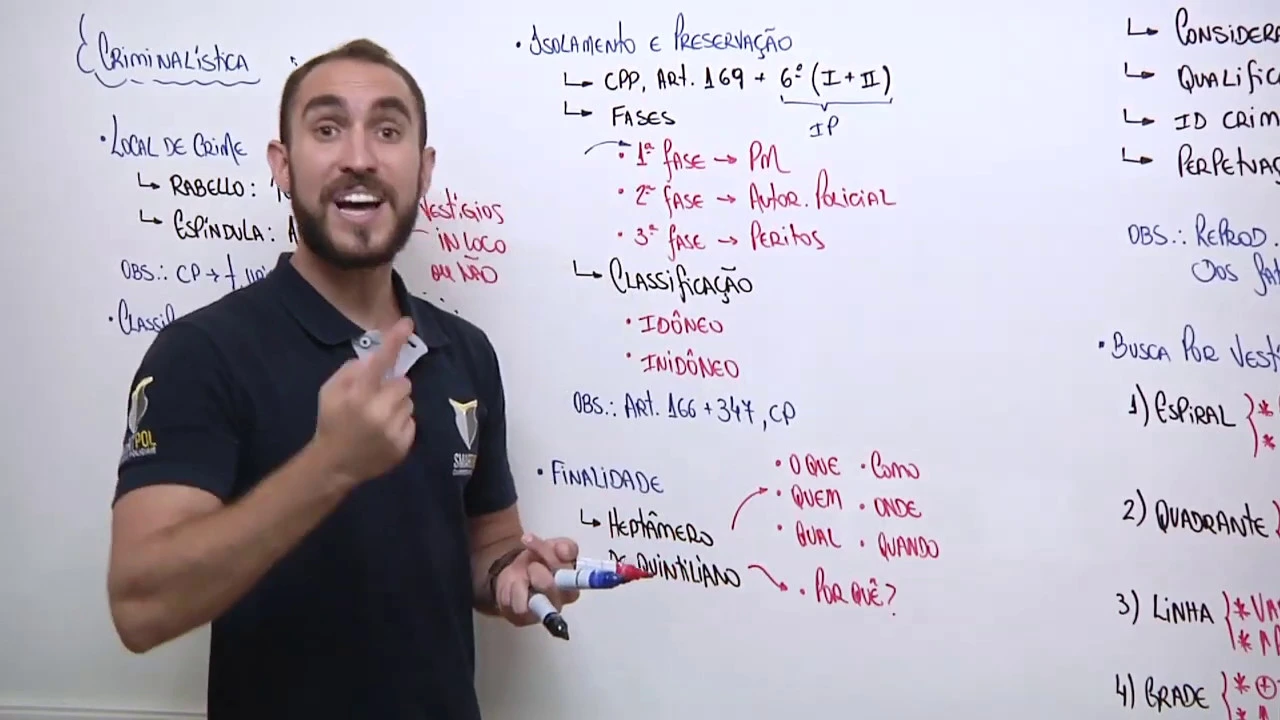 CRIMINALÍSTICA
• LOCAL DE CRIME
↳ RABELLO:
↳ ESPÍNDULA: A
VESTÍGIOS
IN LOCO
OU NÃO
OBS.: CP →
• CLASSIF
• ISOLAMENTO E PRESERVAÇÃO
↳ CPP, ART. 169 + 6º (I + II)
IP
↳ FASES
• 1ª FASE → PM
• 2ª FASE → AUTOR. POLICIAL
• 3ª FASE → PERITOS
↳ CLASSIFICAÇÃO
• IDÔNEO
• INIDÔNEO
OBS.: ART. 166 + 347, CP
• FINALIDADE
↳ HEPTÂMERO
DE QUINTILIANO
• O QUE • COMO
• QUEM • ONDE
• QUAL • QUANDO
• POR QUÊ?
↳ CONSIDERA
↳ QUALIFIC
↳ ID CRIM
↳ PERPETUAÇ
OBS.: REPROD.
DOS FAT
• BUSCA POR VESTÍ
1) ESPIRAL { *
*
2) QUADRANTE
3) LINHA { * VA
*
4) GRADE { * +
*
POL
SMART